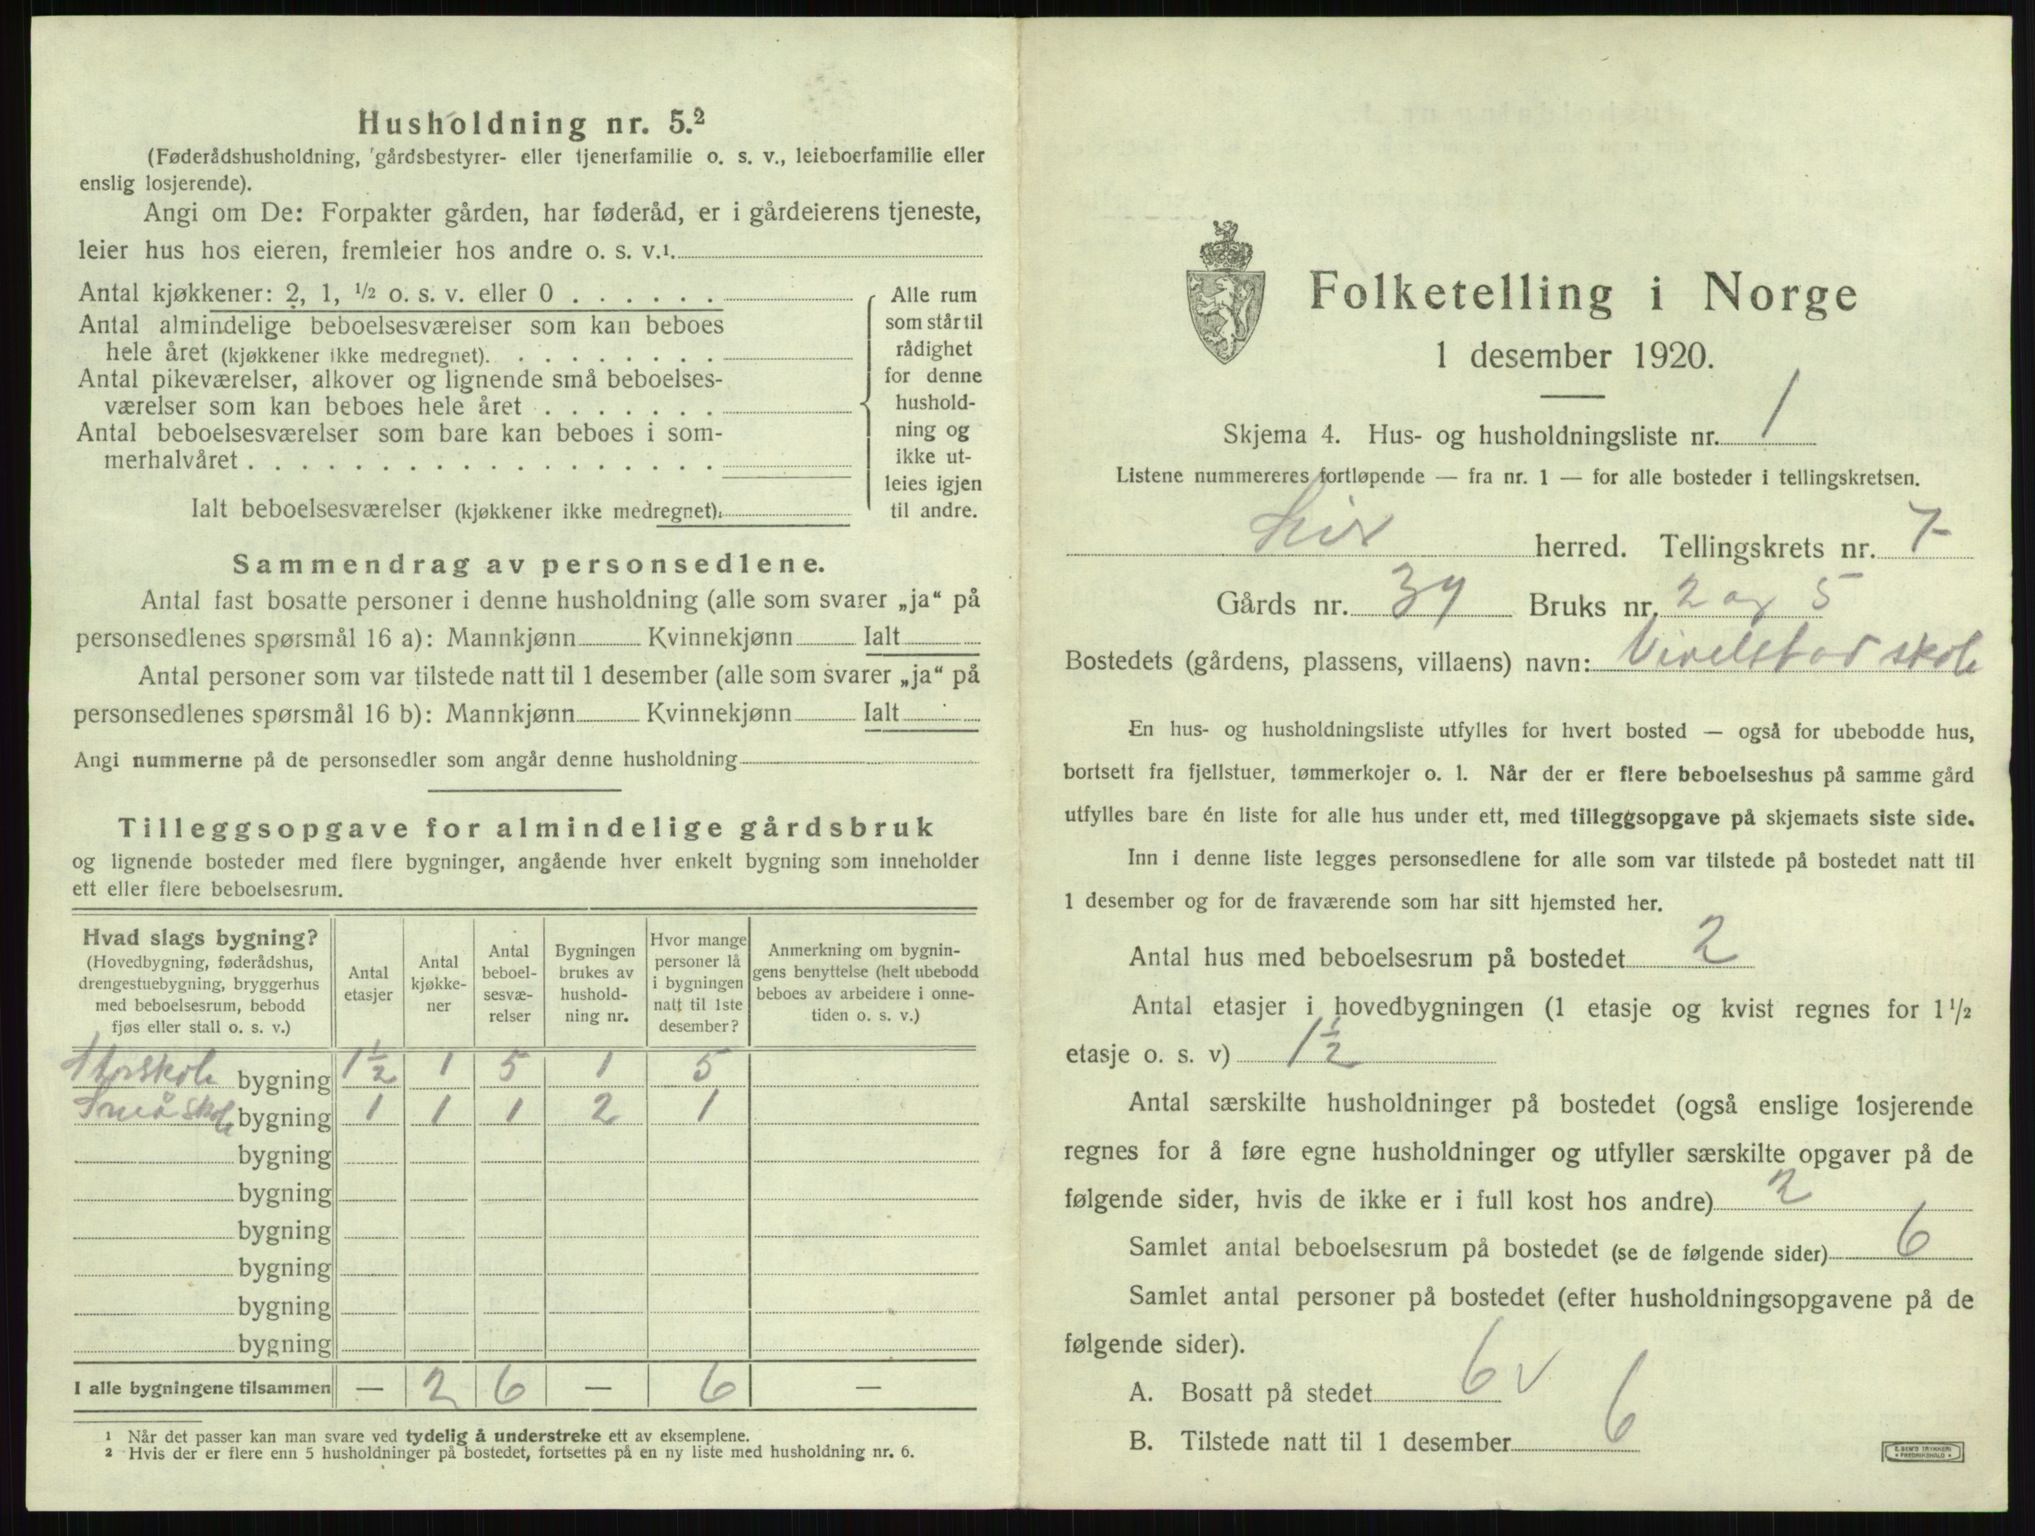 Husholdning nr. 5.²
(Føderådshusholdning, gårdsbestyrer- eller tjenerfamilie o. s. v., leieboerfamilie eller
enslig losjerende).
Angi om De: Forpakter gården, har føderåd, er i gårdeierens tjeneste,
leier hus hos eieren, fremleier hos andre o. s. v.¹
Antal kjøkkener: 2, 1, ½ o. s. v. eller 0
Antal almindelige beboelsesværelser som kan beboes
hele året (kjøkkener ikke medregnet).
Antal pikeværelser, alkover og lignende små beboelses-
værelser som kan beboes hele året
Antal beboelsesværelser som bare kan beboes i som-
merhalvåret
Ialt beboelsesværelser (kjøkkener ikke medregnet).
Alle rum
som står til
rådighet
for denne
hushold-
ning og
ikke ut-
leies igjen
til andre.
Sammendrag av personsedlene.
Antal fast bosatte personer i denne husholdning (alle som svarer „ja“ på
personsedlenes spørsmål 16 a): Mannkjønn Kvinnekjønn Ialt
Antal personer som var tilstede natt til 1 desember (alle som svarer „ja“ på
personsedlenes spørsmål 16 b): Mannkjønn Kvinnekjønn Ialt
Angi nummerne på de personsedler som angår denne husholdning
Tilleggsopgave for almindelige gårdsbruk
og lignende bosteder med flere bygninger, angående hver enkelt bygning som inneholder
ett eller flere beboelsesrum.
Hvad slags bygning?
(Hovedbygning, føderådshus,
drengestuebygning, bryggerhus
med beboelsesrum, bebodd
fjøs eller stall o. s. v.)
Antal
etasjer
Antal
kjøkke-
ner
Antal
beboel-
sesvæ-
relser
Bygningen
brukes av
hushold-
ning nr.
Hvor mange
personer lå
i bygningen
natt til 1ste
desember?
Anmerkning om bygnin-
gens benyttelse (helt ubebodd
beboes av arbeidere i onne-
tiden o. s. v.)
Storskole bygning 1½ 1 5 1 5
Småskole bygning 1 1 1 2 1
bygning
bygning
bygning
bygning
bygning
bygning
I alle bygningene tilsammen — 2 6 — 6 —
¹ Når det passer kan man svare ved tydelig å understreke ett av eksemplene.
² Hvis der er flere enn 5 husholdninger på bostedet, fortsettes på en ny liste med husholdning nr. 6.
Folketelling i Norge
1 desember 1920.
Skjema 4. Hus- og husholdningsliste nr. 1
Listene nummereres fortløpende — fra nr. 1 — for alle bosteder i tellingskretsen.
Lier herred. Tellingskrets nr. 7
Gårds nr. 39 Bruks nr. 2 og 5
Bostedets (gårdens, plassens, villaens) navn: Vivelstad skole
En hus- og husholdningsliste utfylles for hvert bosted — også for ubebodde hus,
bortsett fra fjellstuer, tømmerkojer o. l. Når der er flere beboelseshus på samme gård
utfylles bare én liste for alle hus under ett, med tilleggsopgave på skjemaets siste side.
Inn i denne liste legges personsedlene for alle som var tilstede på bostedet natt til
1 desember og for de fraværende som har sitt hjemsted her.
Antal hus med beboelsesrum på bostedet 2
Antal etasjer i hovedbygningen (1 etasje og kvist regnes for 1½
etasje o. s. v) 1½
Antal særskilte husholdninger på bostedet (også enslige losjerende
regnes for å føre egne husholdninger og utfyller særskilte opgaver på de
følgende sider, hvis de ikke er i full kost hos andre) 2
Samlet antal beboelsesrum på bostedet (se de følgende sider) 6
Samlet antal personer på bostedet (efter husholdningsopgavene på de
følgende sider).
A. Bosatt på stedet 6 v
B. Tilstede natt til 1 desember 6
E. SEM'S TRYKKERI
FREDRIKSHALD